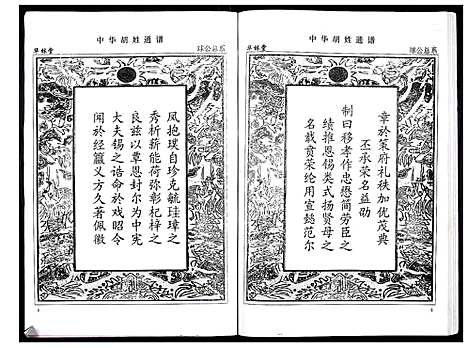 中华胡姓通谱
球公总系
章於策府礼秩加优茂典
丕承荣名益劭
制曰移孝作忠懋简劳臣之
绩推恩锡类式扬贤母之
名载贲荣纶用宣懿范尔
中华胡姓通谱
华林堂
凤抱璞自珍克毓珪璋之
秀析薪能荷弥彰杞梓之
良兹以覃恩封尔为中宪
大夫锡之诰命於戏昭令
闻於经籯义方久著佩徽